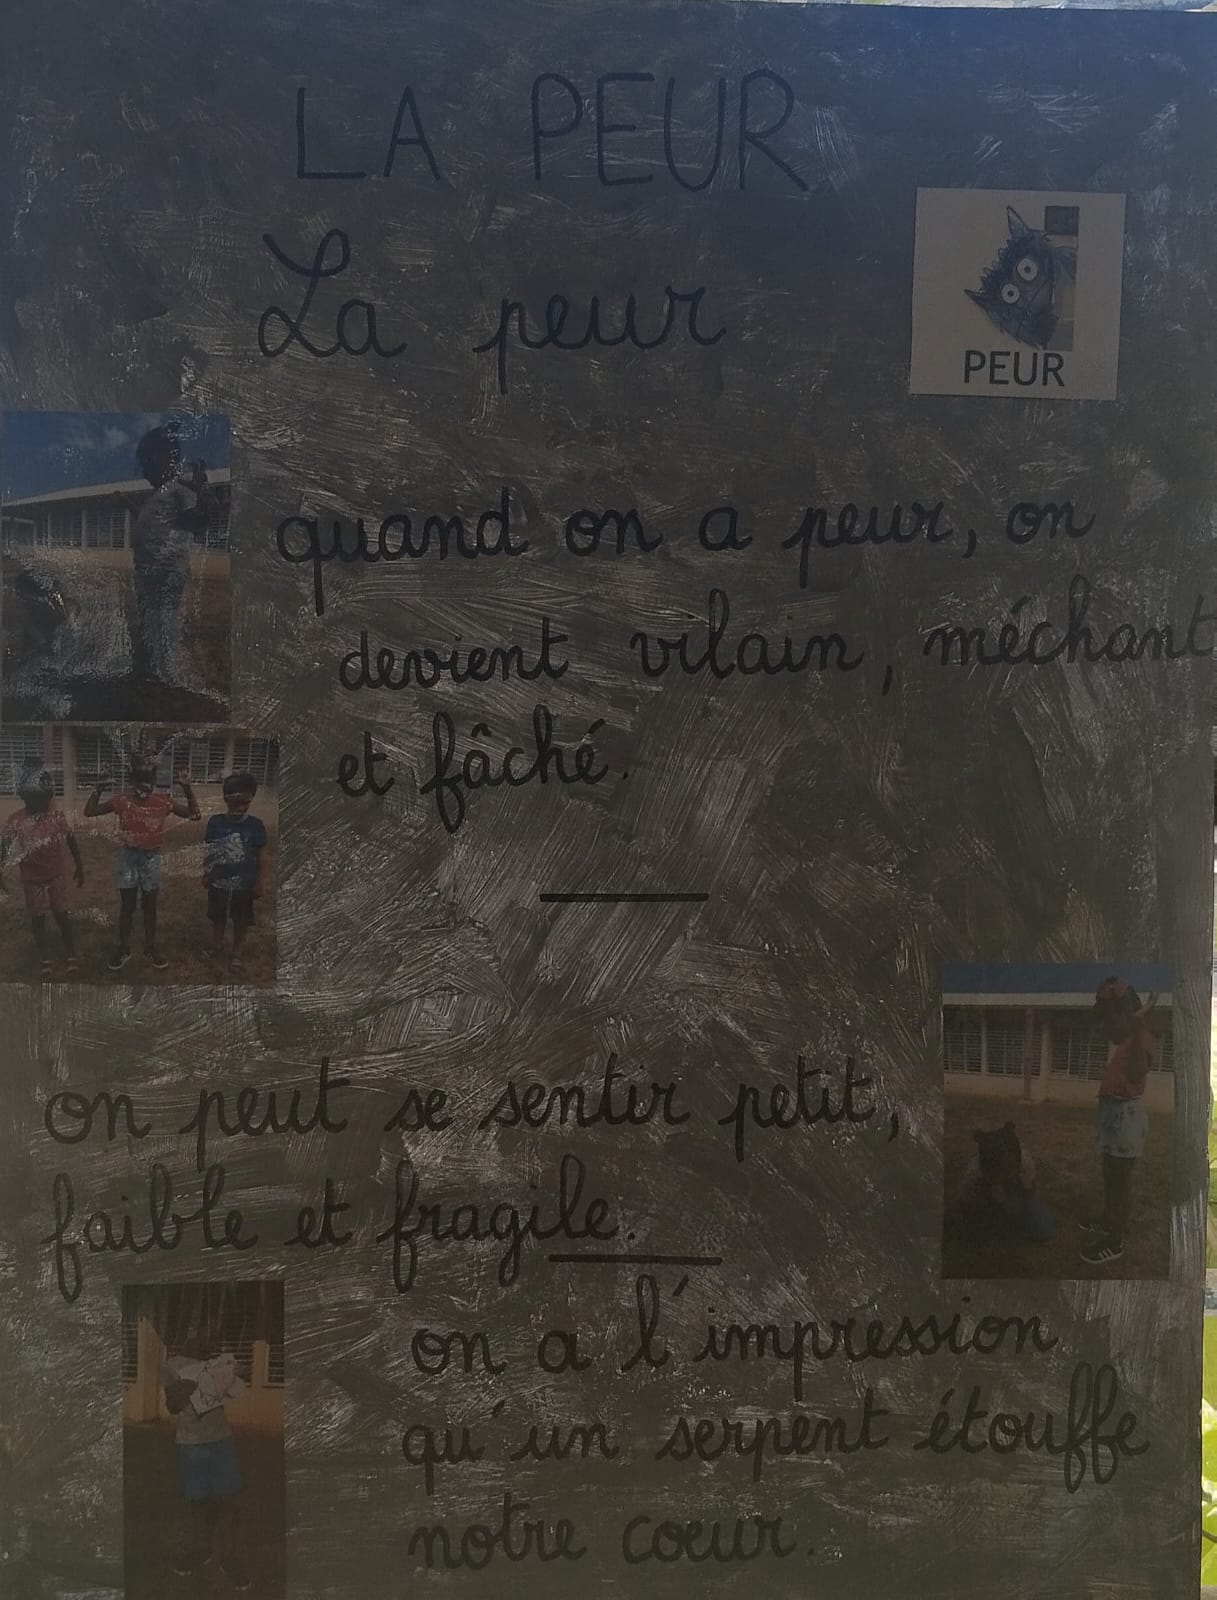 LA PEUR
La peur
PEUR
quand on a peur, on
devient vilain, méchant
et fâché.
on peut se sentir petit,
faible et fragile.
on a l'impression
qu'un serpent étouffe
notre coeur.